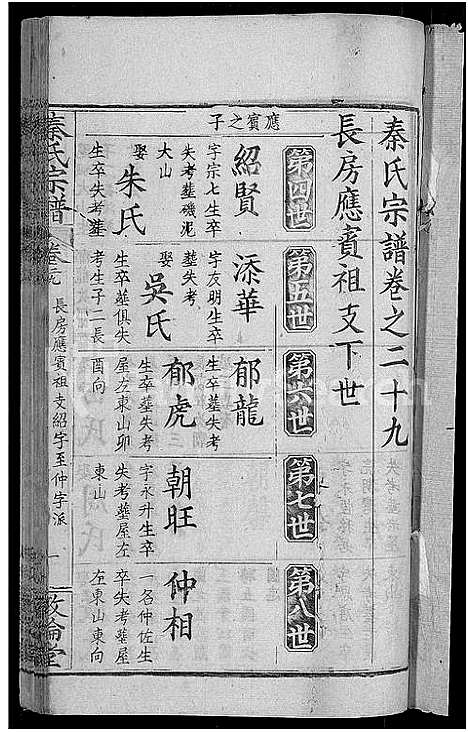 秦氏宗譜卷之二十九
長房應賓祖支下世
第四世
第五世
第六世
第七世
第八世
應賓之子
紹賢
字宗七生卒
失考葬磯泥
大山
娶
朱氏
生卒失考葬
添華
字友明生卒
葬失考
娶
吳氏
生卒葬俱失
考生子二長
郁龍
生卒葬失考
郁虎
生卒葬失考
屋方東山卯
酉向
朝旺
字永升生卒
失考葬屋左
東山
仲相
一名仲佐生
卒失考葬屋
左東山東向
秦氏宗譜
卷
長房應賓祖支紹字至仲字派
一
敘倫堂